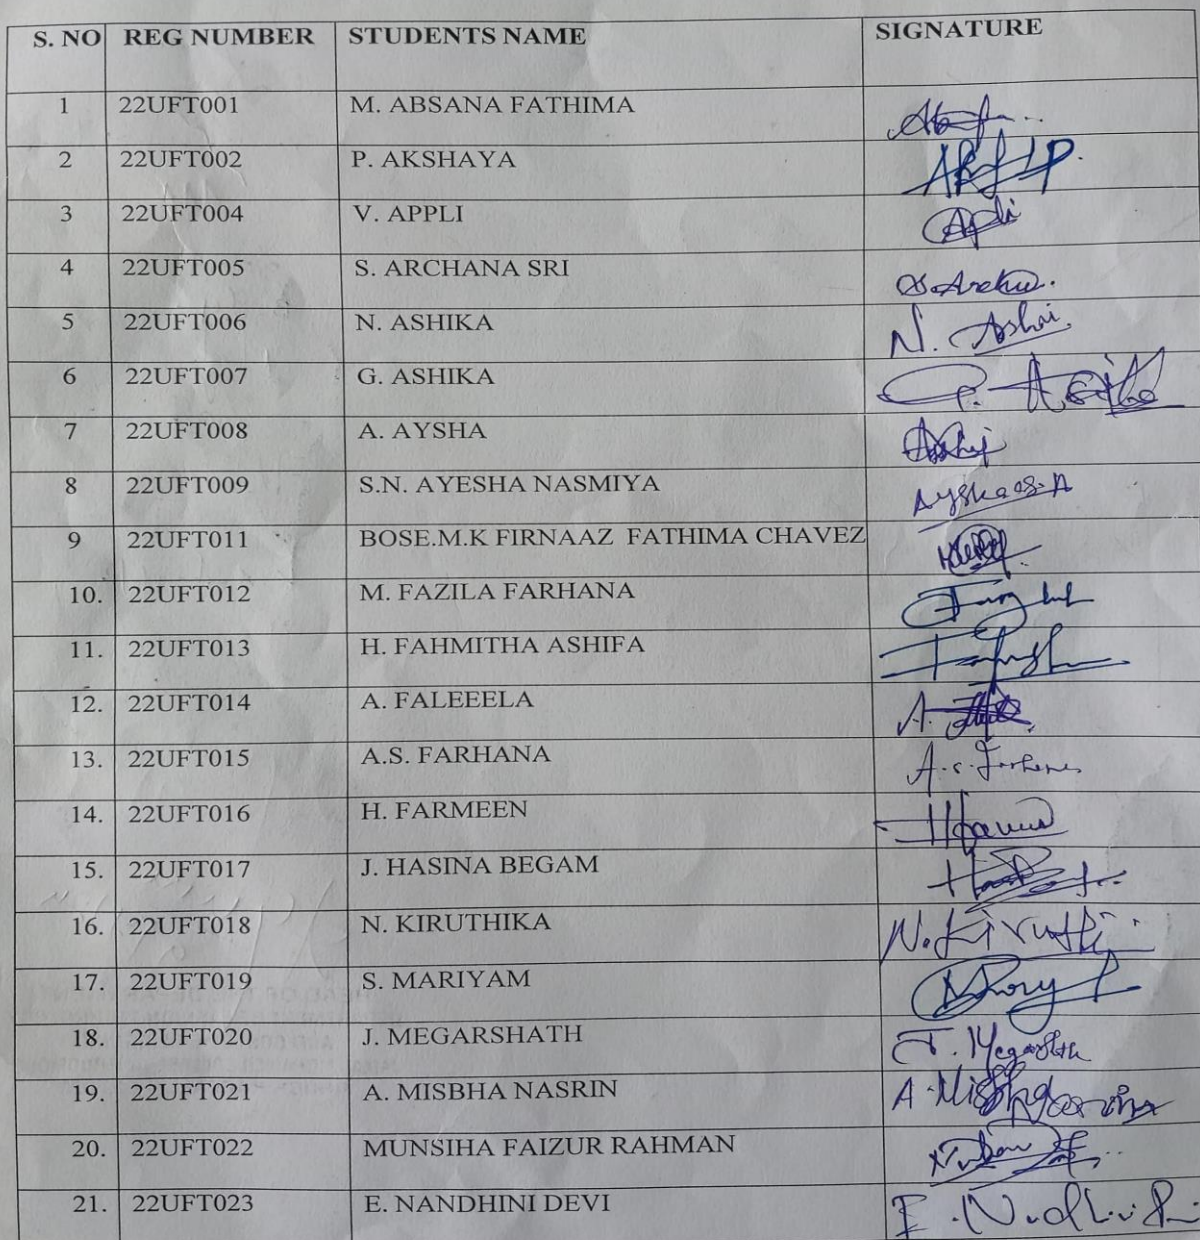 S. NO REG NUMBER STUDENTS NAME SIGNATURE
1 22UFT001 M. ABSANA FATHIMA
2 22UFT002 P. AKSHAYA
3 22UFT004 V. APPLI Apli
4 22UFT005 S. ARCHANA SRI
5 22UFT006 N. ASHIKA N. Ashi
6 22UFT007 G. ASHIKA
7 22UFT008 A. AYSHA
8 22UFT009 S.N. AYESHA NASMIYA
9 22UFT011 BOSE.M.K FIRNAAZ FATHIMA CHAVEZ
10. 22UFT012 M. FAZILA FARHANA
11. 22UFT013 H. FAHMITHA ASHIFA
12. 22UFT014 A. FALEEELA A.
13. 22UFT015 A.S. FARHANA A.S. Farhana
14. 22UFT016 H. FARMEEN
15. 22UFT017 J. HASINA BEGAM
16. 22UFT018 N. KIRUTHIKA N. Kiruthi
17. 22UFT019 S. MARIYAM
18. 22UFT020 J. MEGARSHATH J. Megarshath
19. 22UFT021 A. MISBHA NASRIN
20. 22UFT022 MUNSIHA FAIZUR RAHMAN
21. 22UFT023 E. NANDHINI DEVI